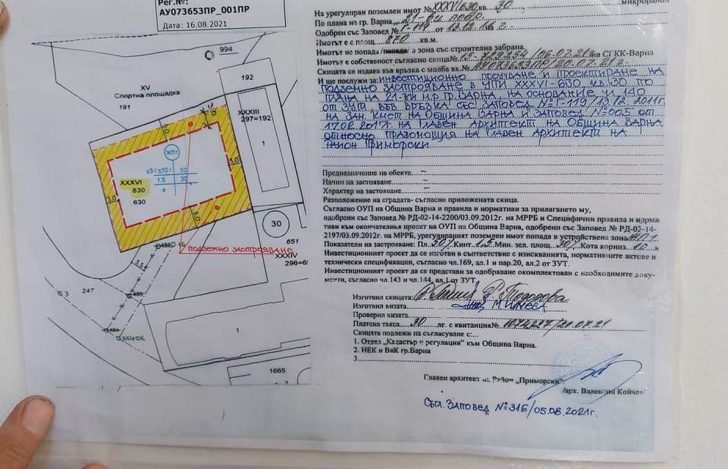 Рег.№:
АУ073653ПР_001ПР
Дата: 16.08.2021
994
192
XV
Спортна площадка
191
XXXIII
297=192
1
ЖП1
≤3/≤10/
50
1.5
30
5.0
5.0
3.0
XXXVI
630
630
30
подземно застрояване
651
XXXIV
296=65
3
247
1
1
1665
На урегулиран поземлен имот XXXVI 630 кв. 30 микрорайон
По плана на гр. Варна
Имотът е с площ 870 кв.м.
Имотът не попада /попада/ в зона със строителна забрана.
И ще послужи за: инвестиционно проучване и проектиране на
подземно застрояване в УПИ XXXVI-630, кв. 30 по
плана на 21-ви п.р. гр. Варна на основание чл. 140
от ЗУТ във връзка със Заповед № Г-119/13.12.2011г.
на Зам. кмет на Община Варна и Заповед № 005 от
17.02.2017г на Главен архитект на Община Варна
относно правомощия на главен архитект на
район Приморски
Предназначение на обекта: –
Начин на застрояване: –
Характер на застрояване: –
Разположение на сградата- съгласно приложената скица.
Съгласно ОУП на Община Варна и правила и нормативи за прилагането му,
одобрен със Заповед № РД-02-14-2200/03.09.2012г. на МРРБ и Специфични правила и норма-
тиви към окончателния проект на ОУП на Община Варна, одобрен със Заповед № РД-02-14-
2197/03.09.2012г. на МРРБ, урегулираният поземлен имот попада в устройствена зона
Показатели на застрояване: Кинт. 1.5 Мин. зел. площ
Инвестиционният проект да се изготви в съответствие с изискванията, нормативните актове и
технически спецификации, съгласно чл.169, ал.1 и пар.20, ал.2 от ЗУТ.
Инвестиционният проект да се представи за одобряване окомплектован с необходимите доку-
менти, съгласно чл.143 и чл.144, ал.1 от ЗУТ.
Изготвил скицата:
Изготвил визата:
Проверил визата:
Платена такса 30 лг. с квитанция №
Скицата подлежи на съгласуване с:
1. Отдел „Кадастър и регулации” към Община Варна.
2. НЕК и ВиК гр.Варна
Главен архитект на Район „Приморски”
/арх. Валентин Койчев/
Съгл. Заповед № 316/05.08.2021г.